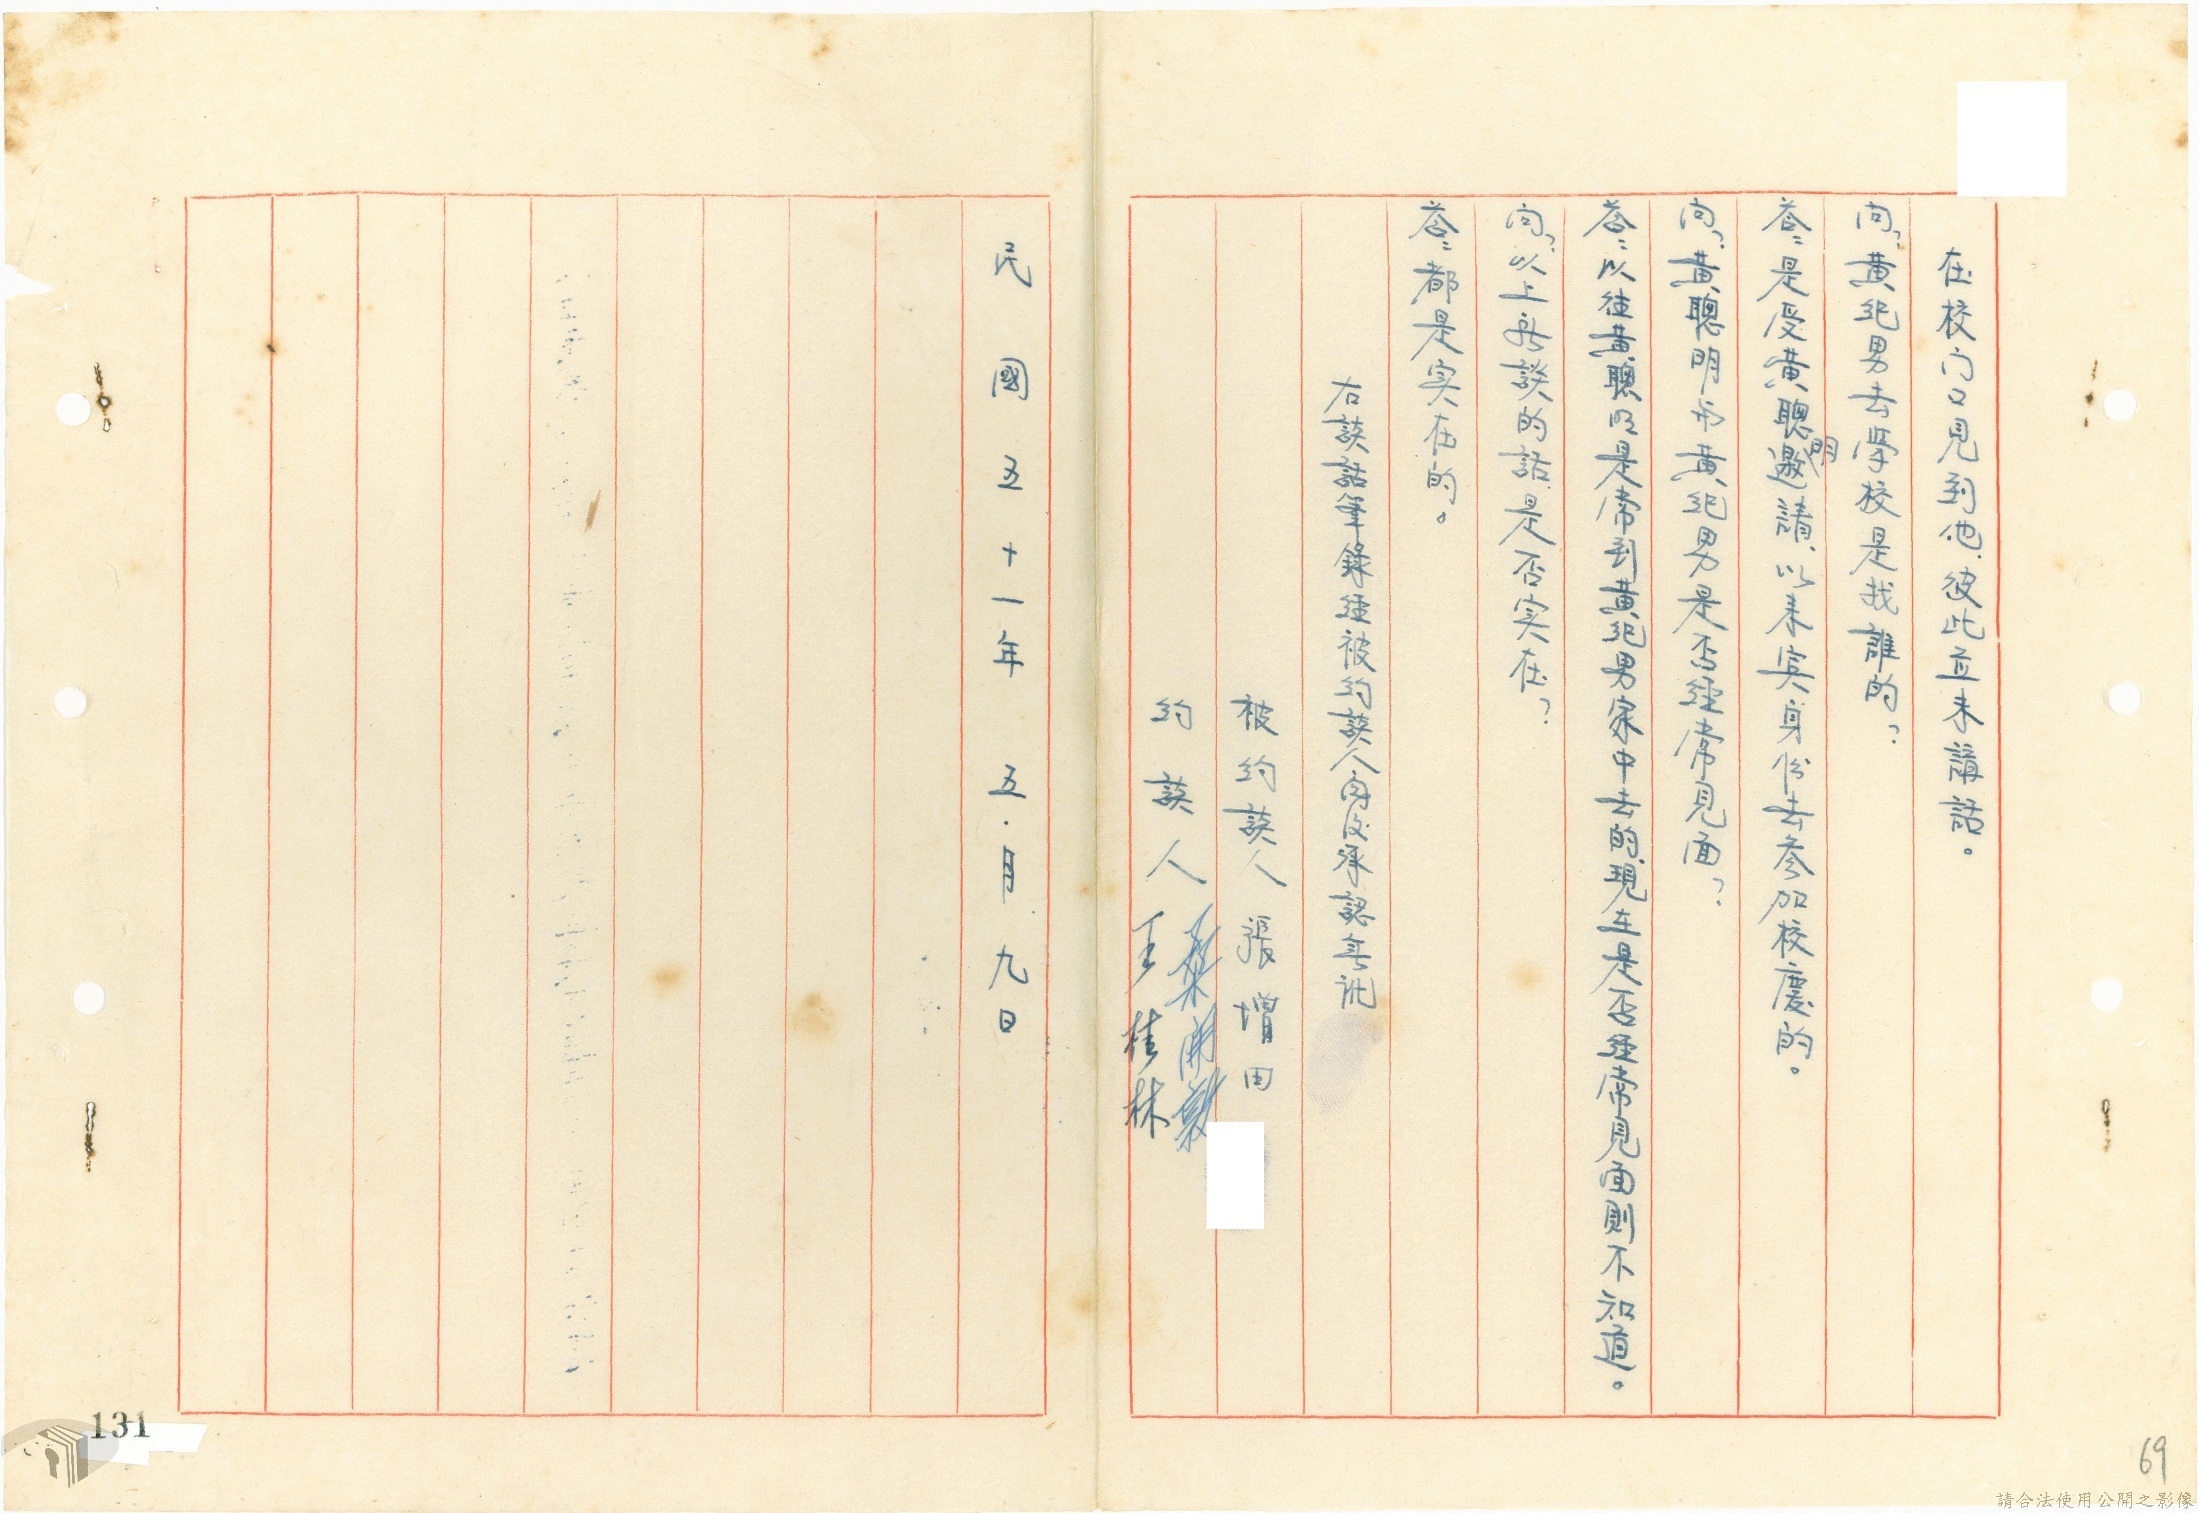 在校门口見到他、彼此並未講話。
问：黃紀男去學校是找誰的？
答：是受黃聰明邀請、以來宾身份去參加校慶的。
问：黃聰明与黃紀男是否經常見面？
答：以往黃聰明是常到黃紀男家中去的、現在是否經常見面則不知道。
问：以上所談的話是否实在？
答：都是实在的。
右談話筆錄經被約談人閱后承認無訛
被約談人 張增田
約談人
王桂林
民國五十一年五月九日
131
69
請合法使用公開之影像